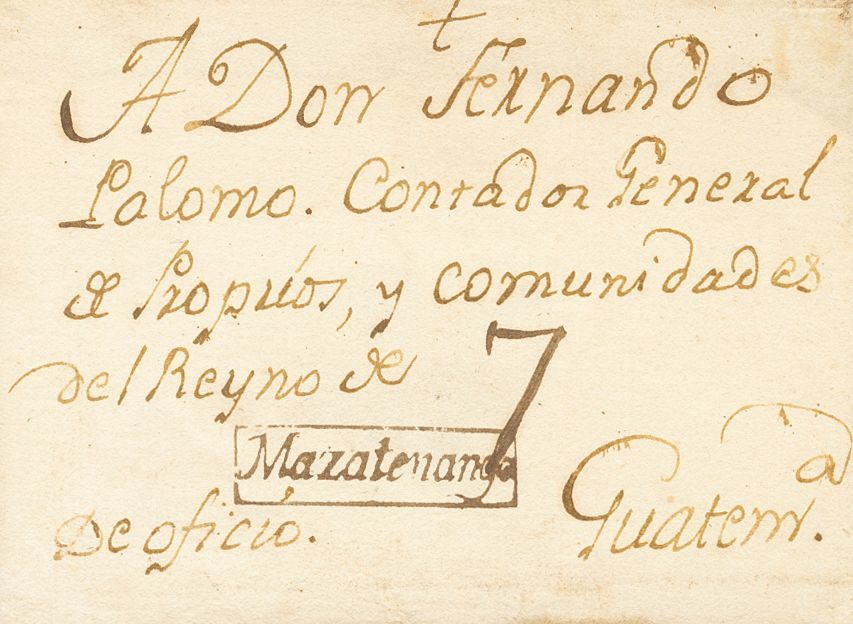 †
A Don Fernando
Palomo. Contador General
de Propios, y Comunidades
del Reyno de
7
Mazatenango
De oficio.
Guatemª.